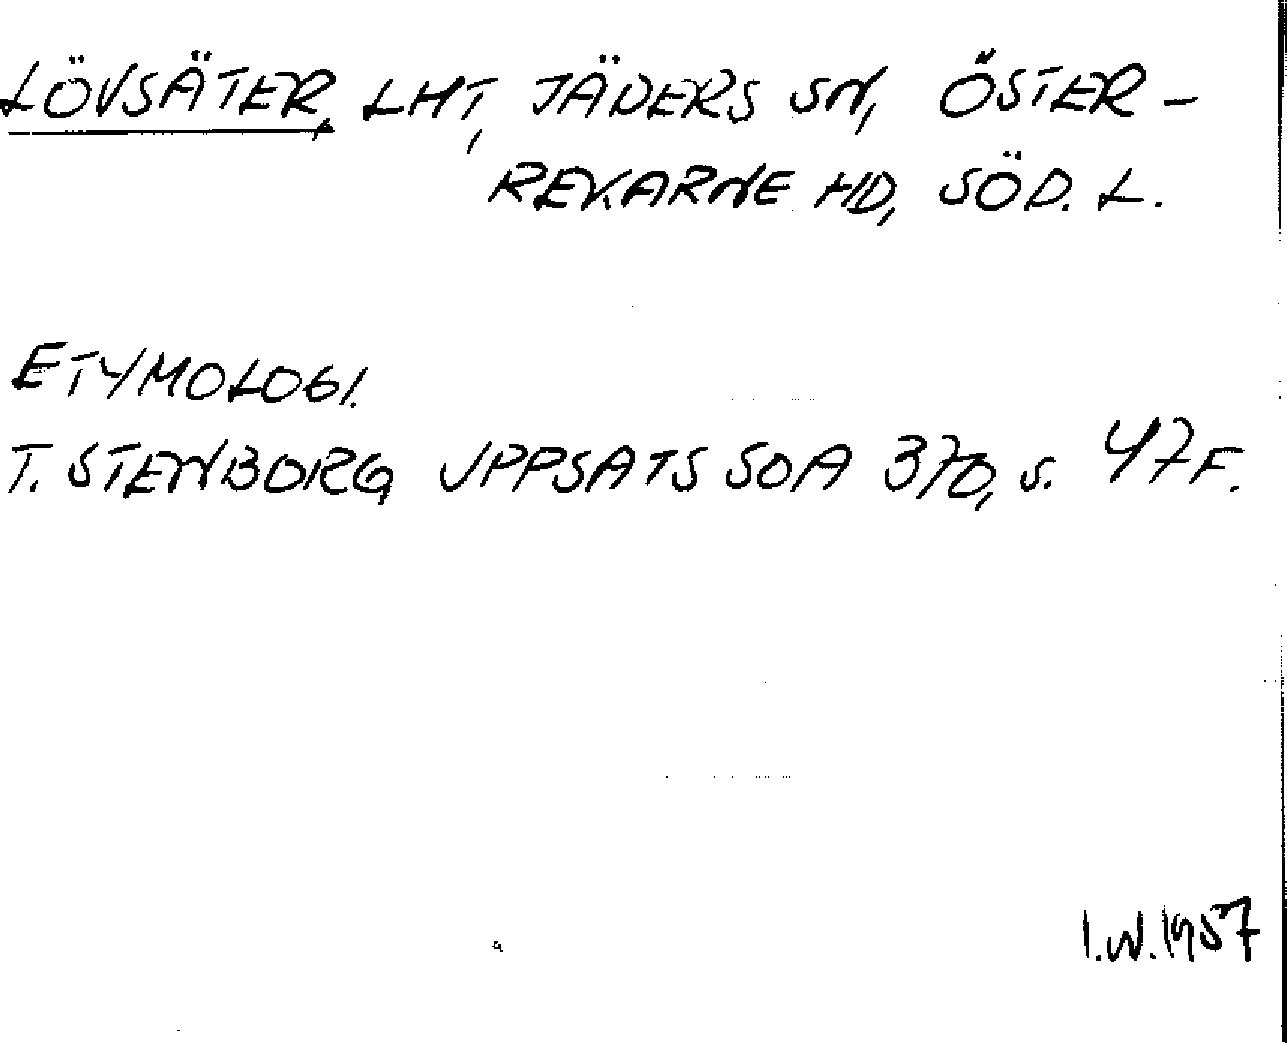 LÖVSÄTER, LHT, JÄDERS SN, ÖSTER-
REKARNE HD, SÖD. L.
ETYMOLOGI.
T. STENBORG UPPSATS SOA 370, S. 47 F.
I.W. 1957